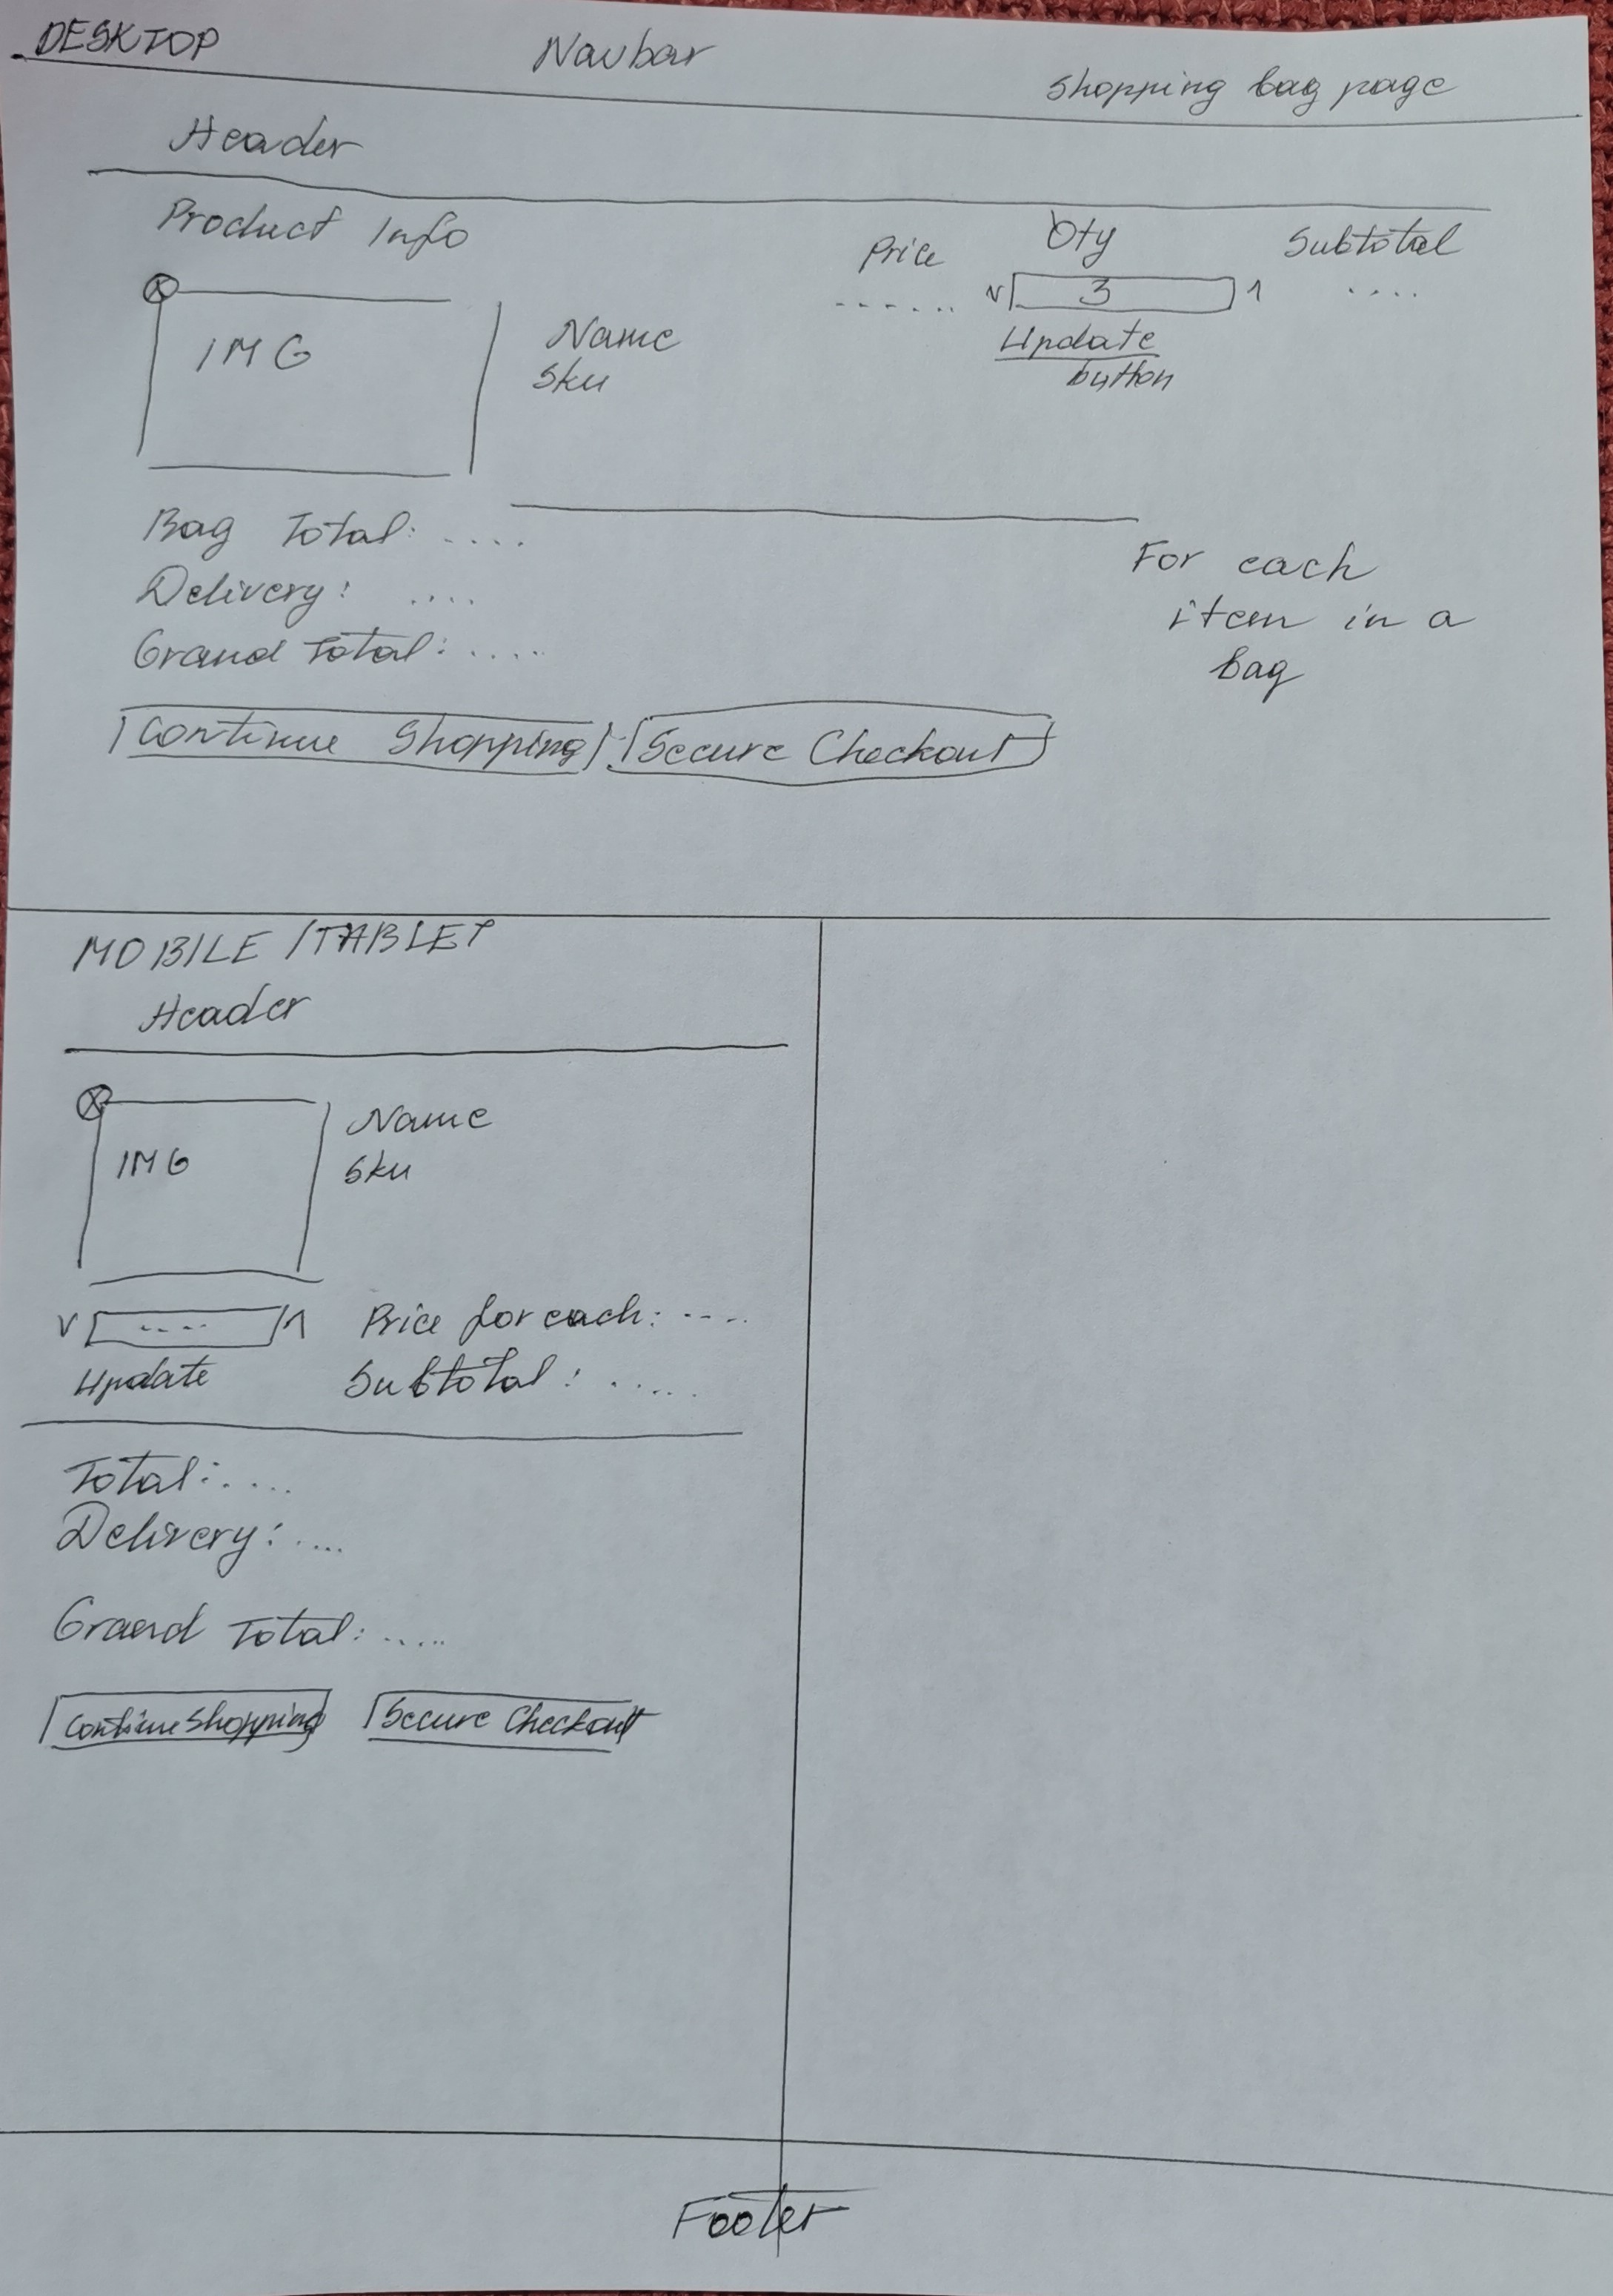 DESKTOP
Navbar
Shopping bag page
Header
Product Info
Price
Qty
Subtotal
...... v 3 ^ ....
IMG
Name
Sku
Update
button
Bag Total: ....
Delivery: ....
Grand Total: .....
For each
item in a
bag
Continue Shopping
Secure Checkout
MOBILE / TABLET
Header
IMG
Name
Sku
v .... ^
Price for each: ....
Update
Subtotal: .....
Total: ....
Delivery: ....
Grand Total: .....
Continue Shopping
Secure Checkout
Footer